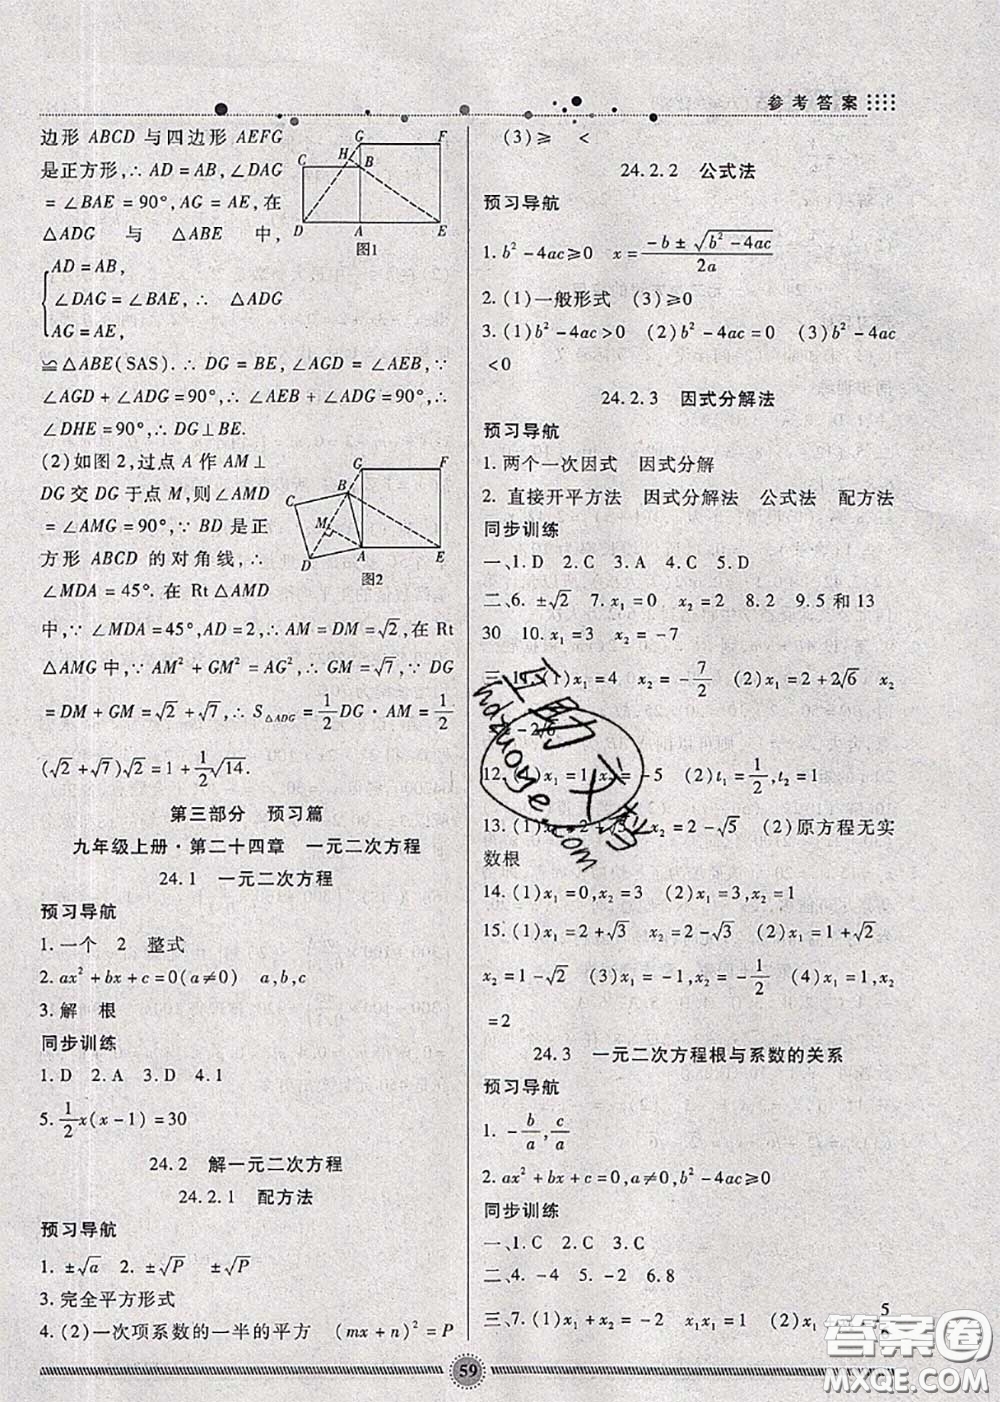 参考答案
边形 ABCD 与四边形 AEFG
是正方形,∴ AD = AB,∠DAG
= ∠BAE = 90°,AG = AE,在
△ADG 与 △ABE 中,
AD = AB,
∠DAG = ∠BAE,∴ △ADG
AG = AE,
≌△ABE(SAS).∴ DG = BE,∠AGD = ∠AEB,∵
∠AGD + ∠ADG = 90°,∴ ∠AEB + ∠ADG = 90°,∴
∠DHE = 90°,∴ DG⊥BE.
G F H B C D A E
图1
(2)如图2,过点 A 作 AM⊥
DG 交 DG 于点 M,则∠AMD
= ∠AMG = 90°,∵ BD 是正
方形 ABCD 的对角线,∴
∠MDA = 45°. 在 Rt△AMD
中,∵ ∠MDA = 45°,AD = 2,∴ AM = DM = √2,在 Rt
△AMG 中,∵ AM² + GM² = AG²,∴ GM = √7,∵ DG
= DM + GM = √2 + √7,∴ S△ADG = 1/2 DG · AM = 1/2
(√2 + √7)√2 = 1 + 1/2 √14.
G F C B M D A E
图2
第三部分 预习篇
九年级上册·第二十四章 一元二次方程
24.1 一元二次方程
预习导航
1. 一个 2 整式
2. ax² + bx + c = 0(a≠0) a,b,c
3. 解 根
同步训练
1. D 2. A 3. D 4. 1
5. 1/2 x(x − 1) = 30
24.2 解一元二次方程
24.2.1 配方法
预习导航
1. ±√a 2. ±√P ±√P
3. 完全平方形式
4. (2)一次项系数的一半的平方 (mx + n)² = P
(3)≥ <
24.2.2 公式法
预习导航
1. b² − 4ac≥0 x = (−b ± √(b² − 4ac))/2a
2. (1)一般形式 (3)≥0
3. (1)b² − 4ac>0 (2)b² − 4ac = 0 (3)b² − 4ac
<0
24.2.3 因式分解法
预习导航
1. 两个一次因式 因式分解
2. 直接开平方法 因式分解法 公式法 配方法
同步训练
一、1. D 2. C 3. A 4. C 5. D
二、6. ±√2 7. x₁ = 0 x₂ = 2 8. 2 9. 5 和 13
30 10. x₁ = 3 x₂ = −7
三、11. (1)x₁ = 4 x₂ = −7/2 (2)x₁ = 2 + 2√6 x₂
− 2√6
12. (1)x₁ = 1, x₂ = −5 (2)t₁ = 1/2, t₂ = 1
13. (1)x₁ = 2 + √5 x₂ = 2 − √5 (2)原方程无实
数根
14. (1)x₁ = 0,x₂ = 3 (2)x₁ = 3,x₂ = 1
15. (1)x₁ = 2 + √3 x₂ = 2 − √3 (2)x₁ = 1 + √2
x₂ = 1 − √2 (3)x₁ = −1,x₂ = −1/2 (4)x₁ = 1,x₂
= 2
24.3 一元二次方程根与系数的关系
预习导航
1. −b/a, c/a
2. ax² + bx + c = 0,a≠0,b² − 4ac≥0
同步训练
一、1. C 2. C 3. C
二、4. −4 5. −2 6. 8
三、7. (1)x₁ + x₂ = −2 x₁x₁ = 1 (2)x₁ + x₂ = 5
59
互助文档
hdzuoye.com
答案圈
MXQE.COM